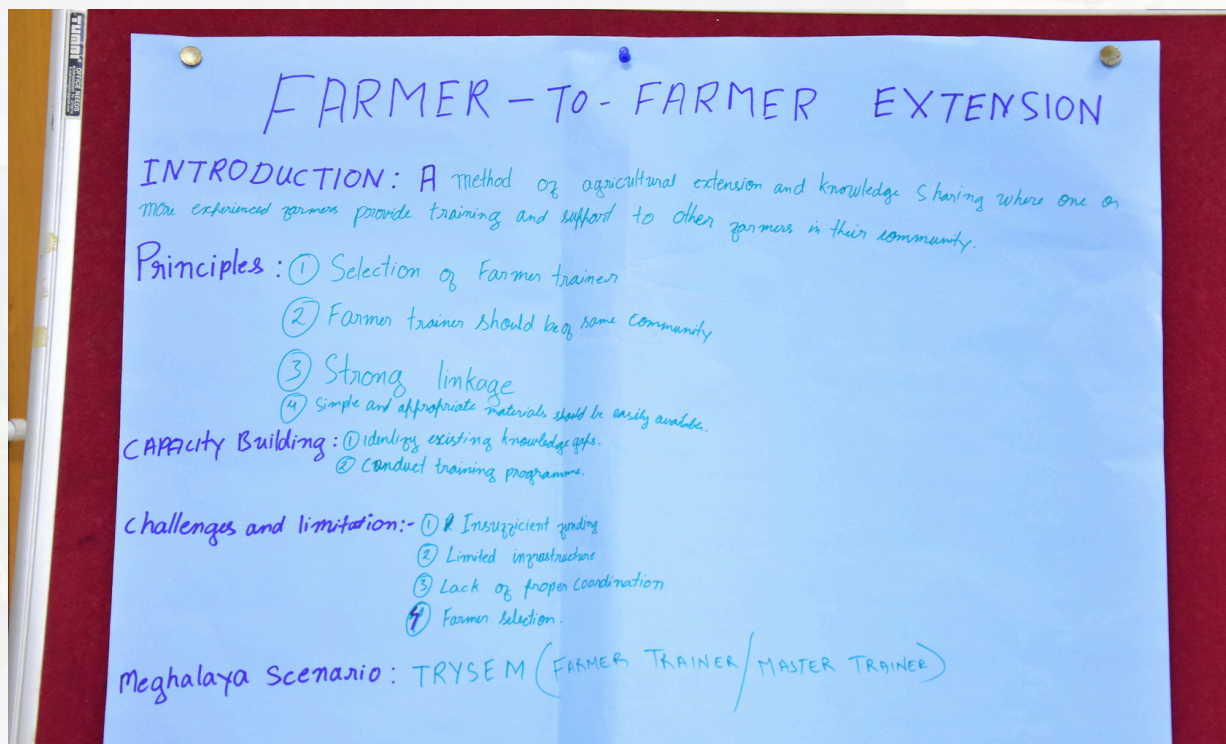 TUMMI OFFICE NEEDS
FARMER - TO - FARMER EXTENSION
INTRODUCTION: A method of agricultural extension and knowledge sharing where one or
more experienced farmers provide training and support to other farmers in their community.
Principles: ① Selection of Farmer trainer
② Farmer trainer should be of same community
③ Strong linkage
④ Simple and appropriate materials should be easily available.
CAPACITY Building: ① Identify existing knowledge gaps.
② Conduct training programme.
Challenges and limitation:- ① Insufficient funding
② Limited infrastructure
③ Lack of proper coordination
④ Farmer selection.
Meghalaya Scenario: TRYSEM (FARMER TRAINER/MASTER TRAINER)